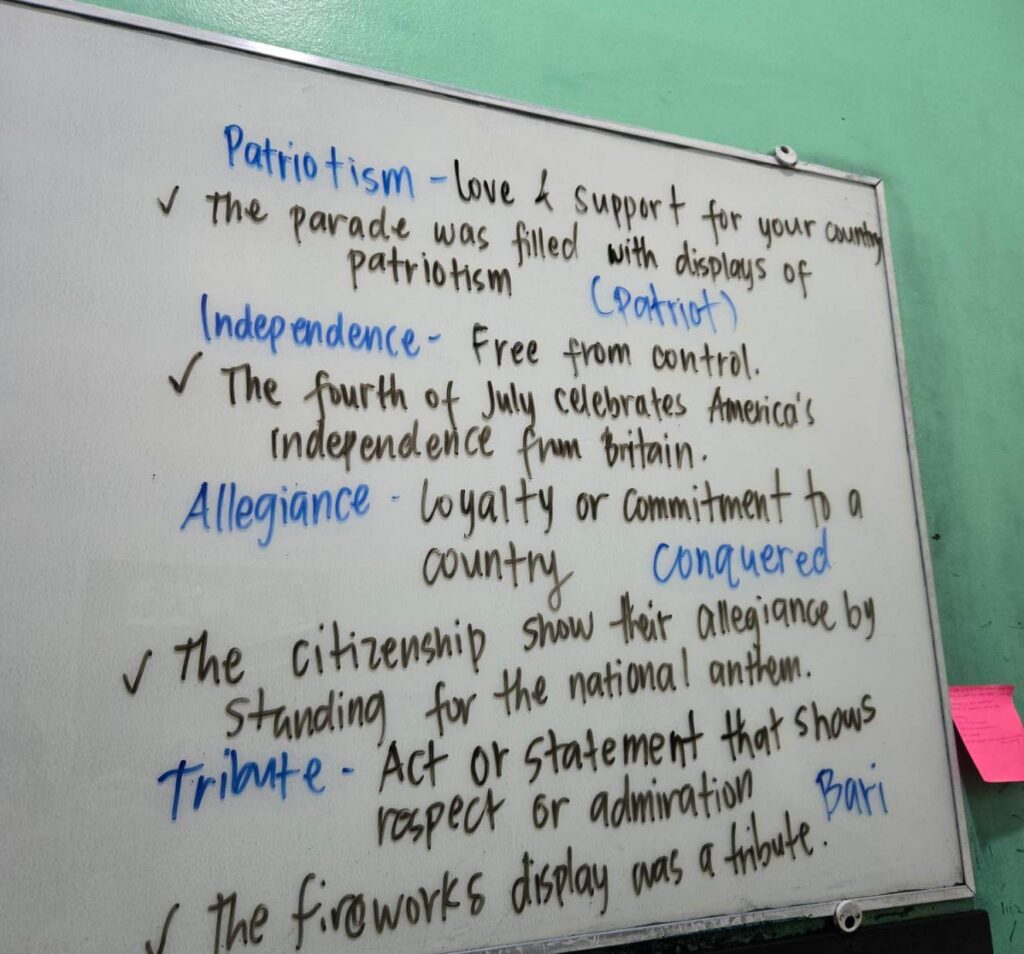 Patriotism - Love & support for your country
✓ The parade was filled with displays of
patriotism
(patriot)
Independence - Free from control.
✓ The fourth of July celebrates America's
independence from Britain.
Allegiance - Loyalty or commitment to a
country
conquered
✓ The citizenship show their allegiance by
standing for the national anthem.
Tribute - Act or statement that shows
respect or admiration
Bari
✓ The fireworks display was a tribute.